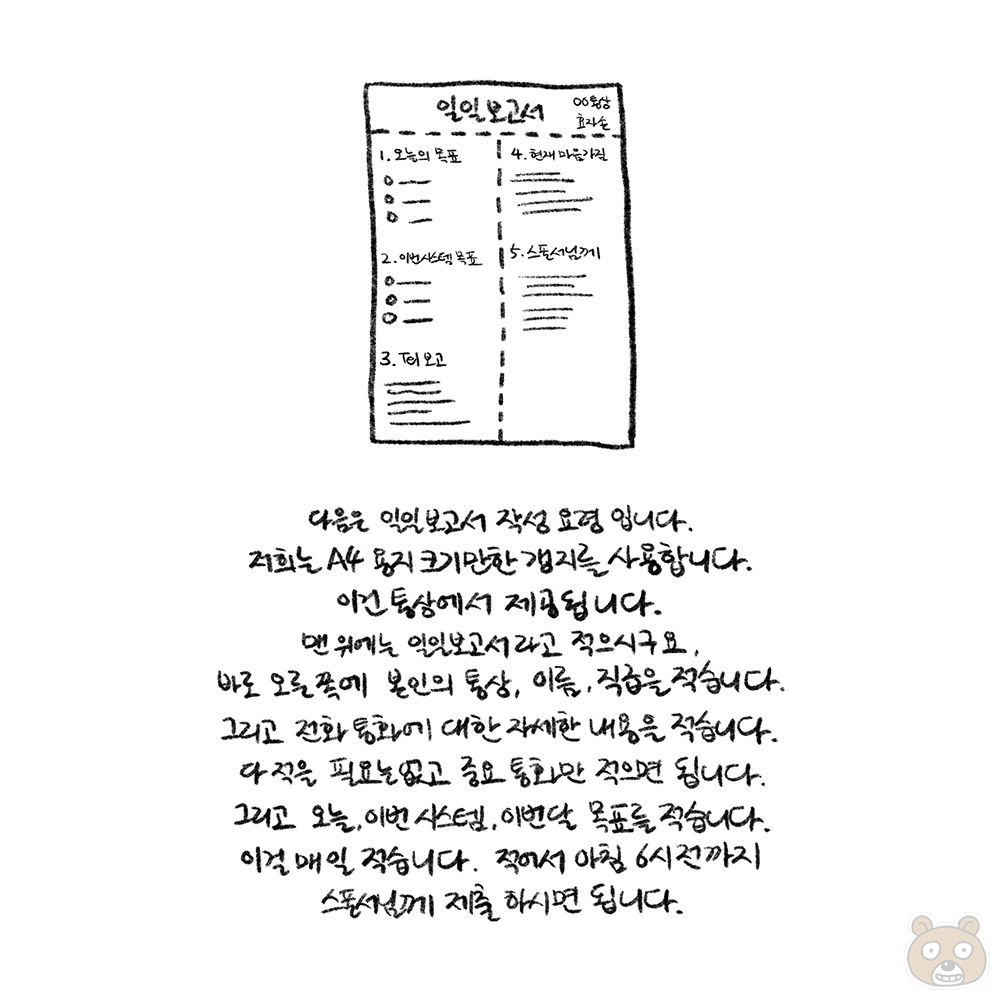 일일보고서
OO통상
효자손
1. 오늘의 목표
2. 이번시스템 목표
3. Tel 보고
4. 현재 마음가짐
5. 스폰서님께
다음은 일일보고서 작성 요령 입니다.
저희는 A4 용지 크기만한 갱지를 사용합니다.
이건 통상에서 제공됩니다.
맨 위에는 일일보고서라고 적으시구요,
바로 오른쪽에 본인의 통상, 이름, 직급을 적습니다.
그리고 전화 통화에 대한 자세한 내용을 적습니다.
다 적을 필요는없고 중요 통화만 적으면 됩니다.
그리고 오늘, 이번 시스템, 이번달 목표를 적습니다.
이걸 매일 적습니다. 적어서 아침 6시 전까지
스폰서님께 제출 하시면 됩니다.